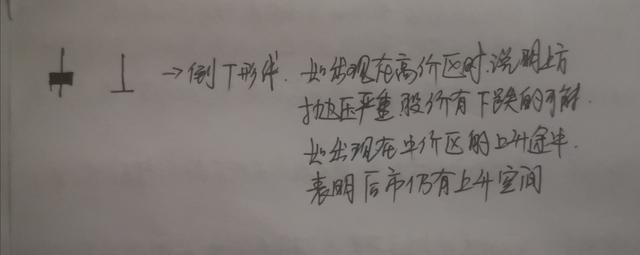 →倒T形线. 如出现在高价区时.说明上方
抛压严重 股价有下跌的可能.
如出现在中价区的上升途中.
表明后市仍有上升空间